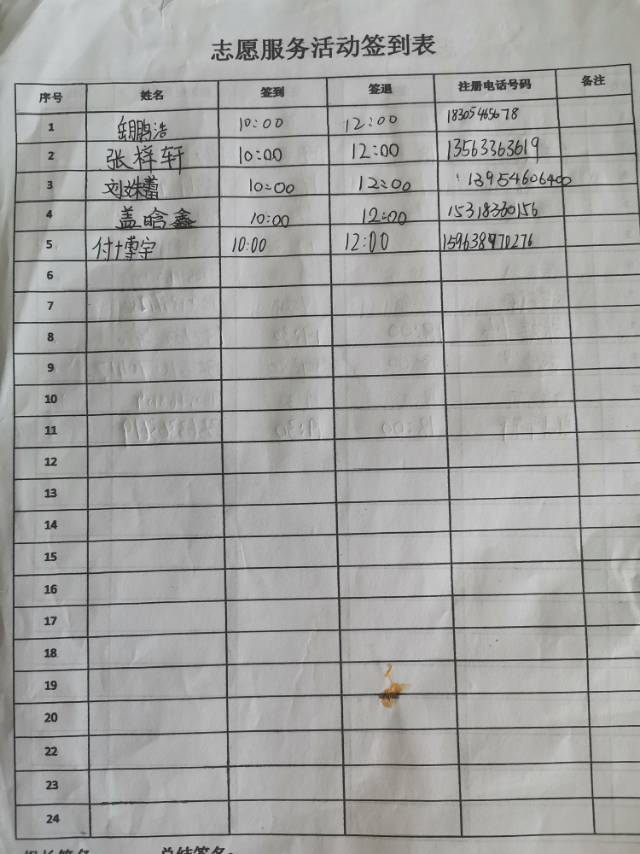 志愿服务活动签到表
序号 姓名 签到 签退 注册电话号码 备注
1 鹏浩 10:00 12:00 18305465678
2 张梓轩 10:00 12:00 13563363619
3 刘姝蕾 10:00 12:00 13954606400
4 盖晗鑫 10:00 12:00 15318360156
5 付博宇 10:00 12:00
6
7
8
9
10
11
12
13
14
15
16
17
18
19
20
22
23
24